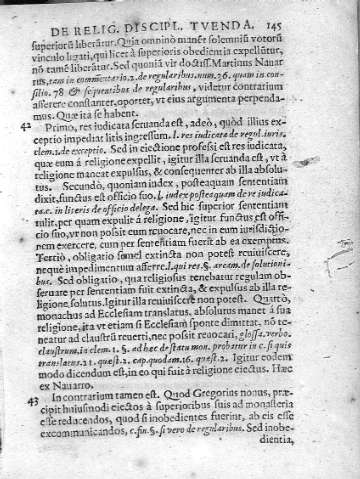 DE RELIG. DISCIPL. TVENDA. 145
superiorū liberātur. Quia omninò manēt solemniū votorū
vinculo ligati, qui licet à superioris obedientia expellūtur,
nō tamē liberātur. Sed quoniā vir doctiss. Martinus Navar
rus, tam in commentario. 2. de regularibus. num. 36. quam in con-
silio. 78 & sequentibus de regularibus, videtur contrarium
asserere constanter, oportet, vt eius argumenta perpenda-
mus. Quæ ita se habent.
42 Primo, res iudicata seruanda est, adeò, quòd illius ex-
ceptio impediat litis ingressum. l. res iudicata de regul. iuris.
clem. 2. de exceptio. Sed in eiectione professi est res iudicata,
quæ eum à religione expellit, igitur illa seruanda est, vt à
religione maneat expulsus, & consequenter ab illa absolu-
tus. Secundò, quoniam index, posteaquam sententiam
dixit, functus est officio suo. l. iudex posteaquam de re iudica-
ta. c. in literis de officio delega. Sed hic superior sententiam
tulit, per quam expulit à religione, igitur functus est offi-
cio suo, vt non possit eum reuocare, nec in eum iurisdictio-
nem exercere, cum per sententiam fuerit ab ea exemptus.
Tertiò, obligatio semel extincta non potest reuiuiscere,
neque impedimentum afferre. l. qui res. §. aream. de solutioni-
bus. Sed obligatio, qua religiosus tenebatur regulam ob-
seruare per sententiam fuit extincta, & expulsus ab illa re-
ligione, solutus. Igitur illa reuiuiscere non potest. Quartò,
monachus ad Ecclesiam translatus, absolutus manet à sua
religione, ita vt etiam si Ecclesiam sponte dimittat, nō te-
neatur ad claustrū reuerti, nec possit reuocari, glossa. verbo.
claustrum, in clem. 1. §. ad hæc de statu mon. probatur in c. si quis
translatus. 21. quest. 2. cap. quodam. 16. quest. 2. Igitur eodem
modo dicendum est, in eo qui fuit à religione eiectus. Hæc
ex Nauarro.
43 In contrarium tamen est. Quod Gregorius nonus, præ-
cipit huiusmodi eiectos à superioribus suis ad monasteria
esse reducendos, quod si inobedientes fuerint, ab eis esse
excommunicandos, c. fin. §. si vero de regularibus. Sed inobe-
dientia,